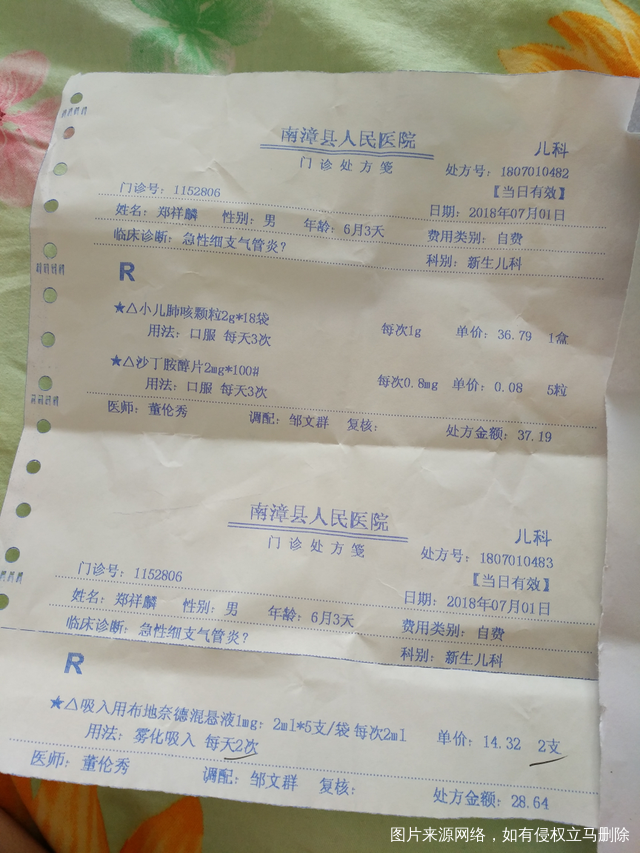 南漳县人民医院
儿科
门诊处方笺
处方号：1807010482
门诊号：1152806
【当日有效】
日期：2018年07月01日
姓名：郑祥麟 性别：男 年龄：6月3天 费用类别：自费
临床诊断：急性细支气管炎？ 科别：新生儿科
R
★△小儿肺咳颗粒2g*18袋
用法：口服 每天3次 每次1g 单价：36.79 1盒
★△沙丁胺醇片2mg*100#
用法：口服 每天3次 每次0.8mg 单价：0.08 5粒
医师：董伦秀 调配：邹文群 复核： 处方金额：37.19
南漳县人民医院
儿科
门诊处方笺
处方号：1807010483
门诊号：1152806
【当日有效】
日期：2018年07月01日
姓名：郑祥麟 性别：男 年龄：6月3天 费用类别：自费
临床诊断：急性细支气管炎？ 科别：新生儿科
R
★△吸入用布地奈德混悬液1mg：2ml*5支/袋 每次2ml 单价：14.32 2支
用法：雾化吸入 每天2次
医师：董伦秀 调配：邹文群 复核： 处方金额：28.64
图片来源网络，如有侵权立马删除